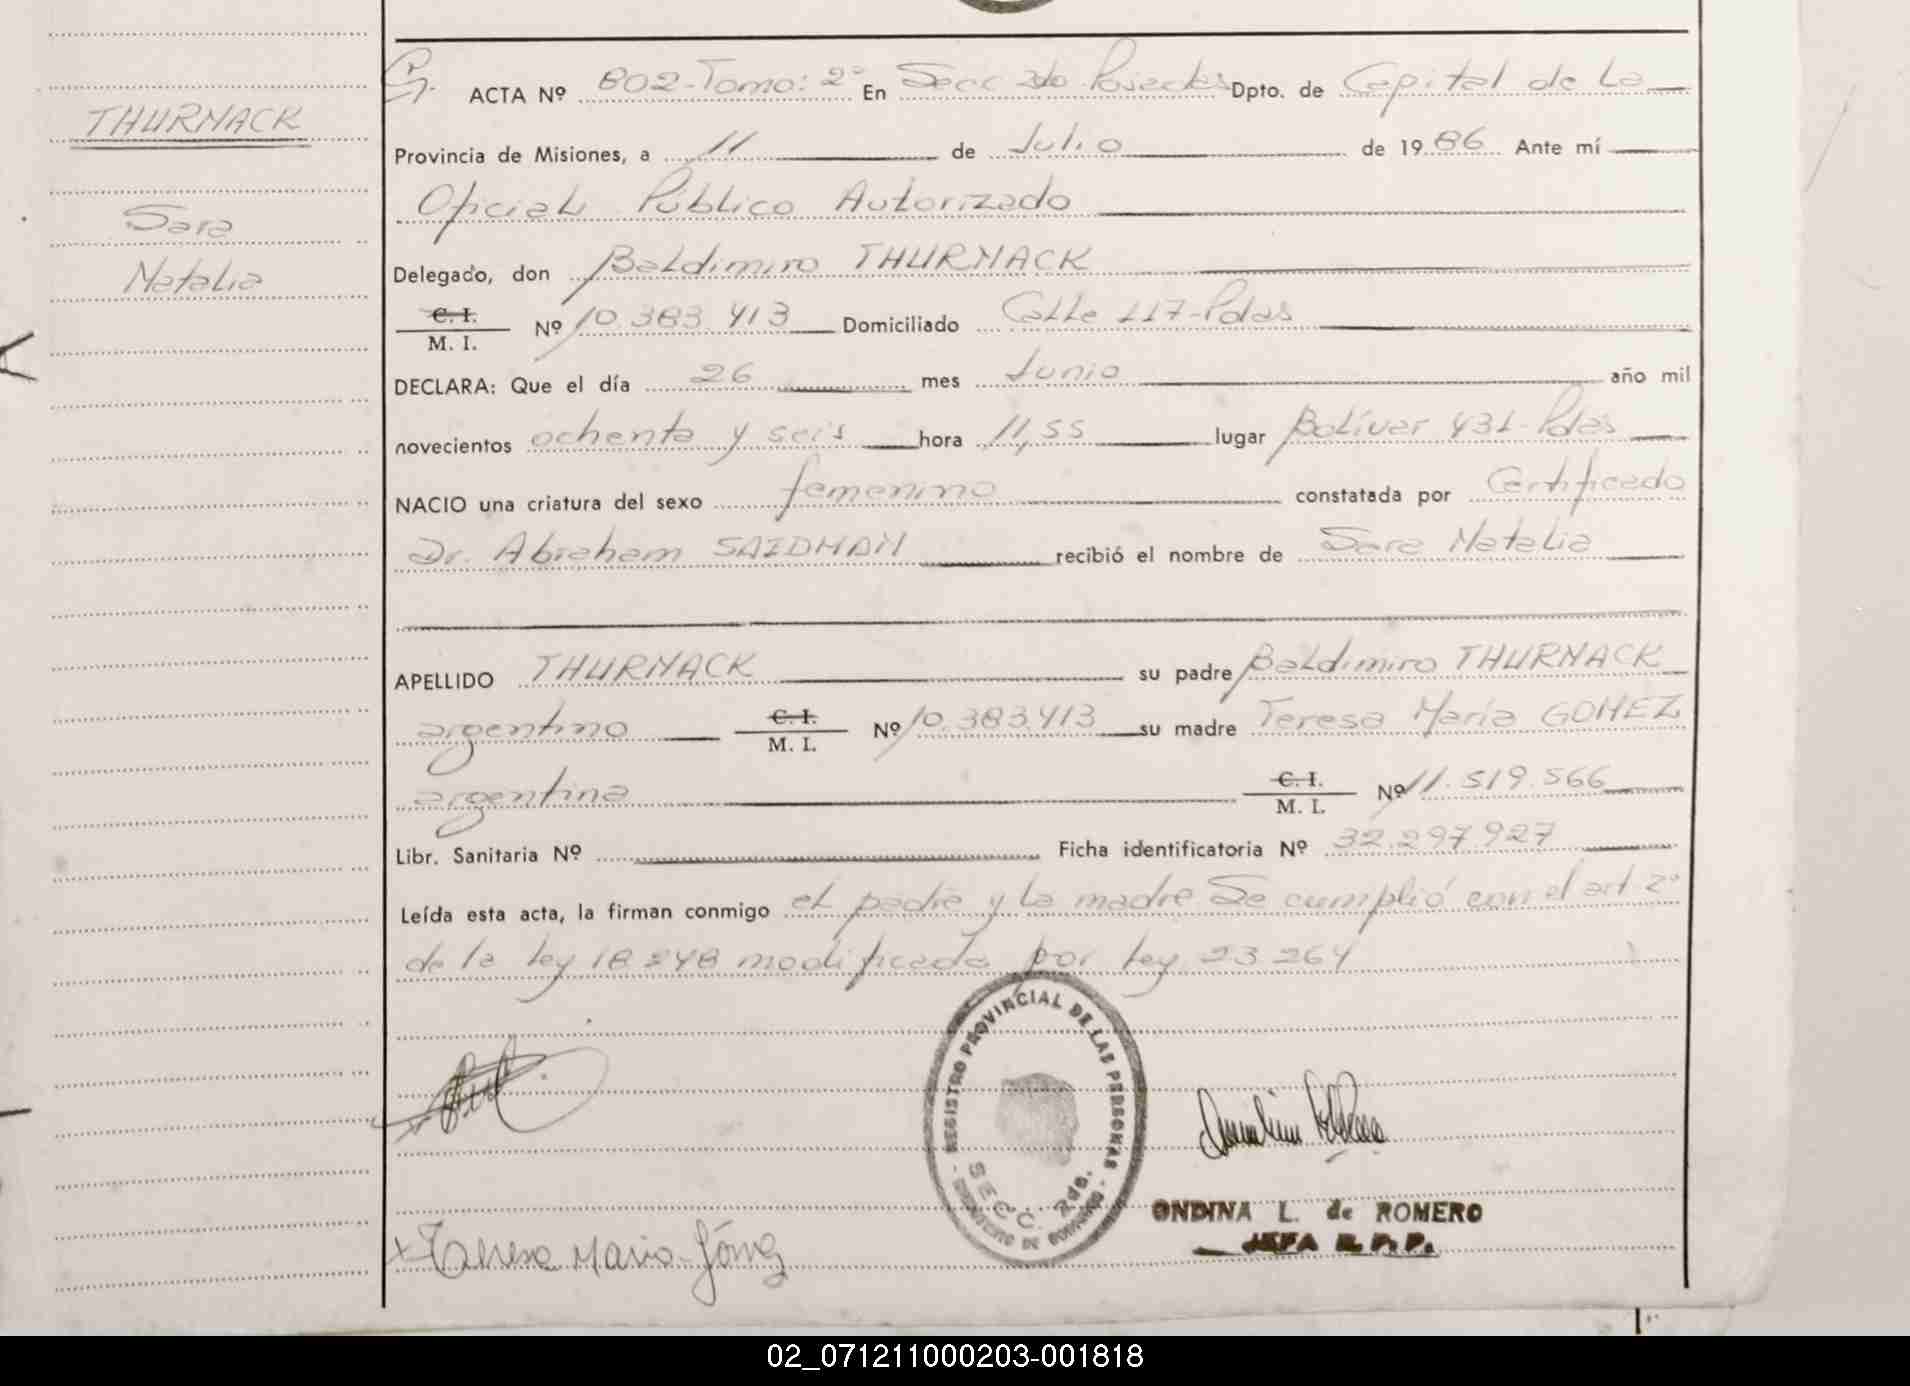 THURMACK
Sara
Natalia
ACTA Nº 802-Tomo: 2º En Secc 2da Posadas Dpto. de Capital de La
Provincia de Misiones, a 11 de Julio de 1986 Ante mí
Oficial Público Autorizado
Delegado, don Baldimiro THURMACK
C. I.
M. I. Nº 10.383.413 Domiciliado Calle 117-Pdas
DECLARA: Que el día 26 mes Junio año mil
novecientos ochenta y seis hora 11,55 lugar Bolívar 431-Pdas
NACIO una criatura del sexo femenino constatada por Certificado
Dr. Abraham SAIDMAN recibió el nombre de Sara Natalia
APELLIDO THURMACK su padre Baldimiro THURMACK
argentino C. I. M. I. Nº 10.383.413 su madre Teresa María GOMEZ
argentina C. I. M. I. Nº 11.519.566
Libr. Sanitaria Nº Ficha identificatoria Nº 32.297.927
Leída esta acta, la firman conmigo el padre y la madre Se cumplió con el art 2º
de la ley 18248 modificada por ley 23264
REGISTRO PROVINCIAL DE LAS PERSONAS
SECC. 2da.
Teresa Maria Gómez
ONDINA L. de ROMERO
JEFA R. P. P.
02_071211000203-001818